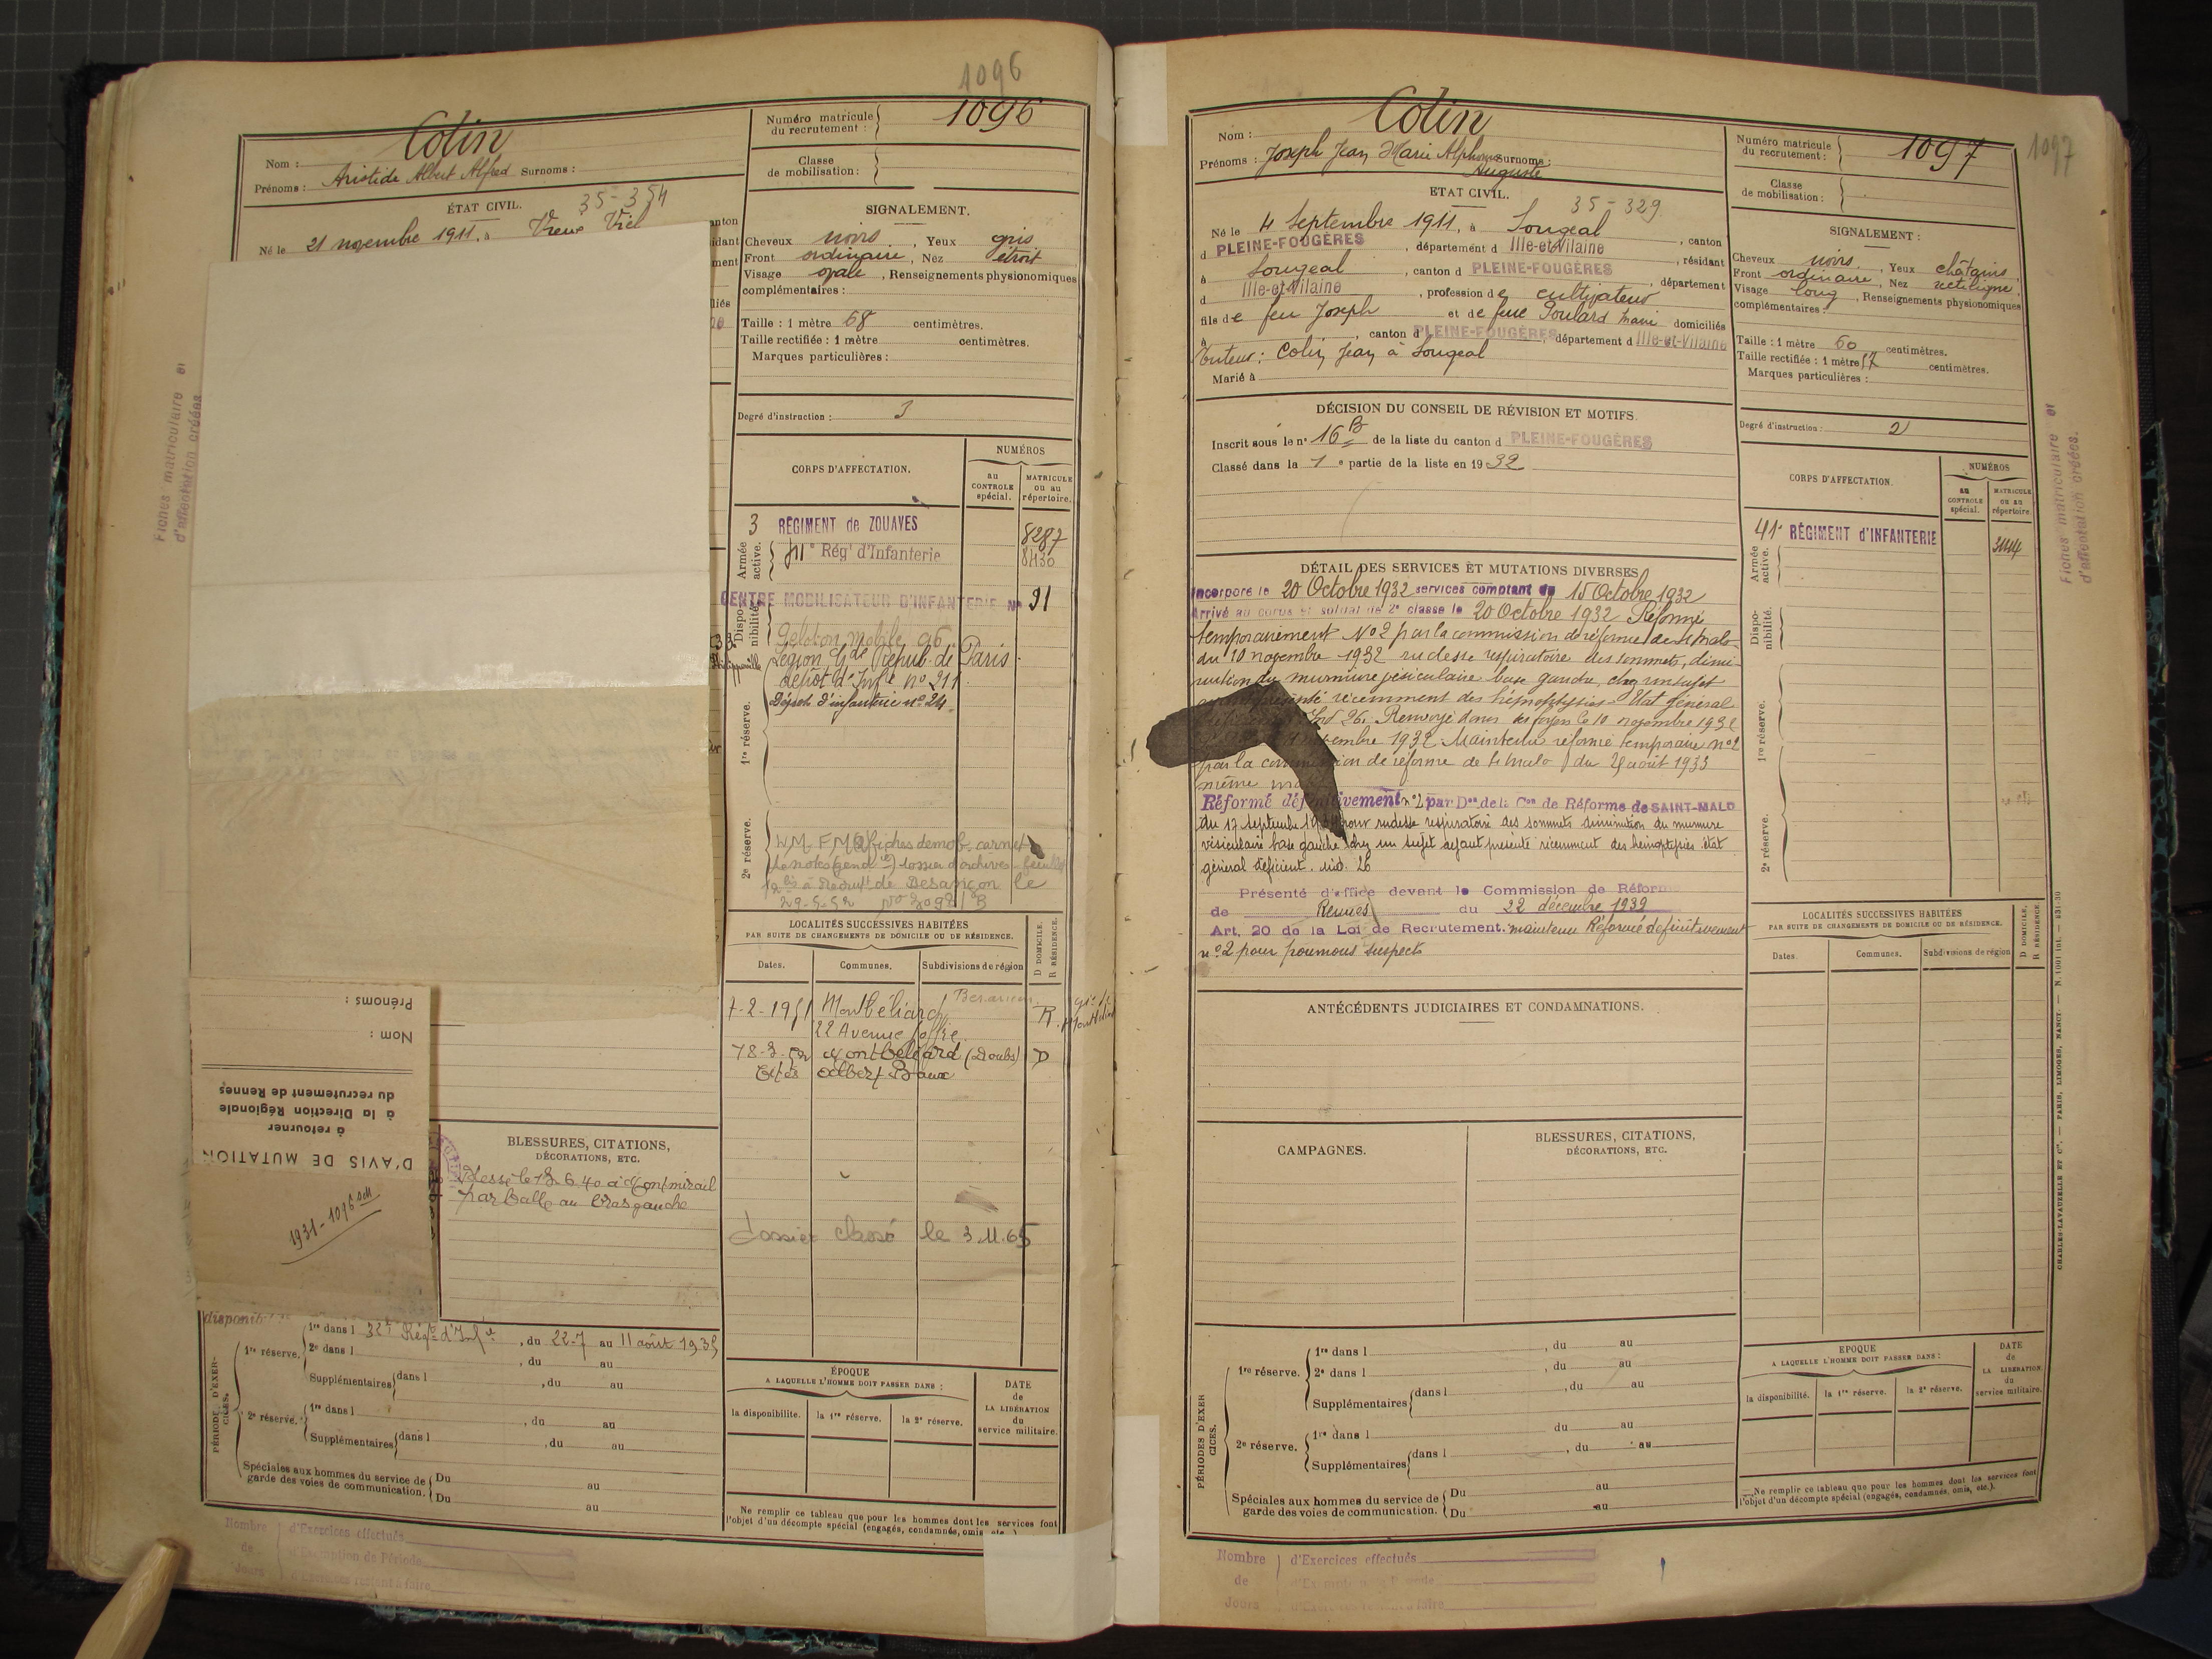 1096
Nom : Colin
Prénoms : Aristide Albert Alfred Surnoms :
Numéro matricule
du recrutement : 1096
Classe
de mobilisation :
ÉTAT CIVIL. 35-354
Né le 21 novembre 1911, à Vieux Viel
SIGNALEMENT.
Cheveux noirs, Yeux gris
Front ordinaire, Nez étroit
Visage ovale, Renseignements physionomiques
complémentaires :
Taille : 1 mètre 68 centimètres.
Taille rectifiée : 1 mètre centimètres.
Marques particulières :
Degré d'instruction : 3
Fiches matriculaire et
d'affectation créées.
CORPS D'AFFECTATION.
NUMÉROS
au
CONTROLE
spécial.
MATRICULE
ou au
répertoire.
Armée
active.
3 RÉGIMENT de ZOUAVES 8287
41e Régt d'Infanterie 8430
Dispo-
nibilité.
CENTRE MOBILISATEUR D'INFANTERIE No 91
Peloton mobile 96
Légion Gde Répub. de Paris
dépôt d'Infie no 211
Dépôt d'infanterie no 24.
1re réserve.
2e réserve.
LOCALITÉS SUCCESSIVES HABITÉES
PAR SUITE DE CHANGEMENTS DE DOMICILE OU DE RÉSIDENCE.
D DOMICILE.
R RÉSIDENCE.
Dates. Communes. Subdivisions de région
7-2-1951 Montbéliard R
22 Avenue Joffre
Montbéliard (Doubs) D
Albert
dossier classé le 3.11.65
Prénoms :
Nom :
du recrutement de Rennes
à la Direction Régionale
à retourner
D'AVIS DE MUTATION
1931-1096
BLESSURES, CITATIONS,
DÉCORATIONS, ETC.
Blessé le 13.6.40 à Montmirail
par balle au bras gauche
PÉRIODE D'EXER-
CICES.
1re réserve. 1re dans l 32e Régt d'Infie, du 22-7 au 11 août 1935
2e dans l , du au
Supplémentaires dans l , du au
2e réserve. 1re dans l , du au
Supplémentaires dans l , du au
Spéciales aux hommes du service de Du au
garde des voies de communication. Du au
ÉPOQUE
A LAQUELLE L'HOMME DOIT PASSER DANS :
la disponibilité. la 1re réserve. la 2e réserve.
DATE
de
LA LIBÉRATION
du
service militaire.
Ne remplir ce tableau que pour les hommes dont les services font
l'objet d'un décompte spécial (engagés, condamnés, omis, etc.)
Nombre d'Exercices effectués
de d'Exemption de Période
Jours d'Exercices restant à faire
1097
Nom : Colin
Prénoms : Joseph Jean Marie Alphonse Surnoms :
Auguste
Numéro matricule
du recrutement : 1097
Classe
de mobilisation :
ETAT CIVIL. 35-329
Né le 4 Septembre 1911, à Sougeal, canton
d PLEINE-FOUGÈRES, département d Ille-et-Vilaine, résidant
à Sougeal, canton d PLEINE-FOUGÈRES, département
d Ille-et-Vilaine, profession de cultivateur
fils de feu Joseph et de feue Poulard Marie domiciliés
à , canton d PLEINE-FOUGÈRES, département d Ille-et-Vilaine
Tuteur : Colin Jean à Sougeal
Marié à
SIGNALEMENT :
Cheveux noirs, Yeux châtains,
Front ordinaire, Nez rectiligne,
Visage long, Renseignements physionomiques
complémentaires :
Taille : 1 mètre 60 centimètres.
Taille rectifiée : 1 mètre 57 centimètres.
Marques particulières :
Degré d'instruction : 2
DÉCISION DU CONSEIL DE RÉVISION ET MOTIFS.
Inscrit sous le no 16 B de la liste du canton d PLEINE-FOUGÈRES
Classé dans la 1e partie de la liste en 1932
DÉTAIL DES SERVICES ET MUTATIONS DIVERSES
Incorporé le 20 Octobre 1932 services comptant du 15 Octobre 1932
Arrivé au corps et soldat de 2e classe le 20 Octobre 1932 Réformé
temporairement No 2 par la commission de réforme de St Malo
du 10 novembre 1932 rudesse respiratoire des sommets, dimi-
nution du murmure vésiculaire base gauche, chez un sujet
présenté récemment des hémoptysies Etat général
26. Renvoyé dans ses foyers le 10 novembre 1932
1932. Maintenu réformé temporaire no 2
par la commission de réforme de St Malo du août 1933
même
Réformé définitivement no 2 par Don de la Con de Réforme de SAINT-MALO
du 17 septembre pour rudesse respiratoire des sommets diminution du murmure
vésiculaire base gauche chez un sujet ayant présenté récemment des hémoptysies état
général déficient. ind. 26
Présenté d'office devant la Commission de Réforme
de Rennes du 22 décembre 1939
Art. 20 de la Loi de Recrutement. maintenu Réformé définitivement
no 2 pour poumons suspects
CORPS D'AFFECTATION.
NUMÉROS
au
CONTROLE
spécial.
MATRICULE
ou au
répertoire.
Armée
active.
41e RÉGIMENT d'INFANTERIE
Dispo-
nibilité.
1re réserve.
2e réserve.
Fiches matriculaire et
d'affectation créées.
ANTÉCÉDENTS JUDICIAIRES ET CONDAMNATIONS.
CAMPAGNES.
BLESSURES, CITATIONS,
DÉCORATIONS, ETC.
LOCALITÉS SUCCESSIVES HABITÉES
PAR SUITE DE CHANGEMENTS DE DOMICILE OU DE RÉSIDENCE.
D DOMICILE.
R RÉSIDENCE.
Dates. Communes. Subdivisions de région
CHARLES-LAVAUZELLE ET Cie. — PARIS, LIMOGES, NANCY. — N. 1001 int. — 831-30
PÉRIODES D'EXER
CICES.
1re réserve. 1re dans l , du au
2e dans l , du au
Supplémentaires dans l , du au
2e réserve. 1re dans l du au
Supplémentaires dans l , du au
Spéciales aux hommes du service de Du au
garde des voies de communication. Du au
EPOQUE
A LAQUELLE L'HOMME DOIT PASSER DANS :
la disponibilité. la 1re réserve. la 2e réserve.
DATE
de
LA LIBÉRATION
du
service militaire.
Ne remplir ce tableau que pour les hommes dont les services font
l'objet d'un décompte spécial (engagés, condamnés, omis, etc.).
Nombre d'Exercices effectués
de
Jours